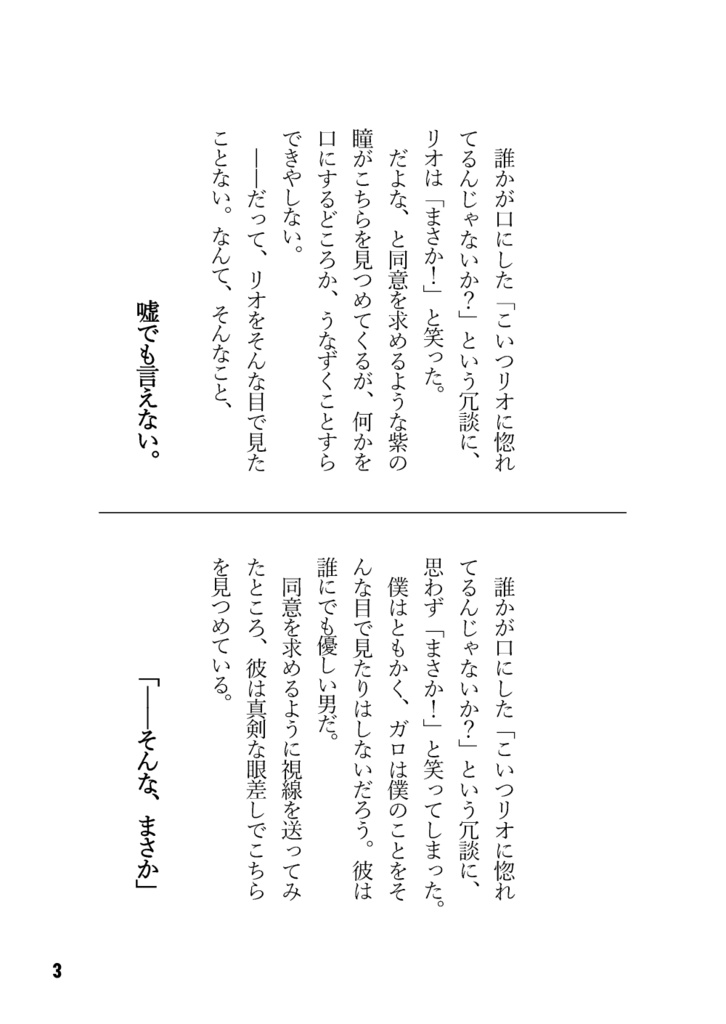 誰かが口にした「こいつリオに惚れ
てるんじゃないか？」という冗談に、
リオは「まさか！」と笑った。
　だよな、と同意を求めるような紫の
瞳がこちらを見つめてくるが、何かを
口にするどころか、うなずくことすら
できやしない。
　――だって、リオをそんな目で見た
ことない。なんて、そんなこと、
嘘でも言えない。
　誰かが口にした「こいつリオに惚れ
てるんじゃないか？」という冗談に、
思わず「まさか！」と笑ってしまった。
　僕はともかく、ガロは僕のことをそ
んな目で見たりはしないだろう。彼は
誰にでも優しい男だ。
　同意を求めるように視線を送ってみ
たところ、彼は真剣な眼差しでこちら
を見つめている。
「――そんな、まさか」
3